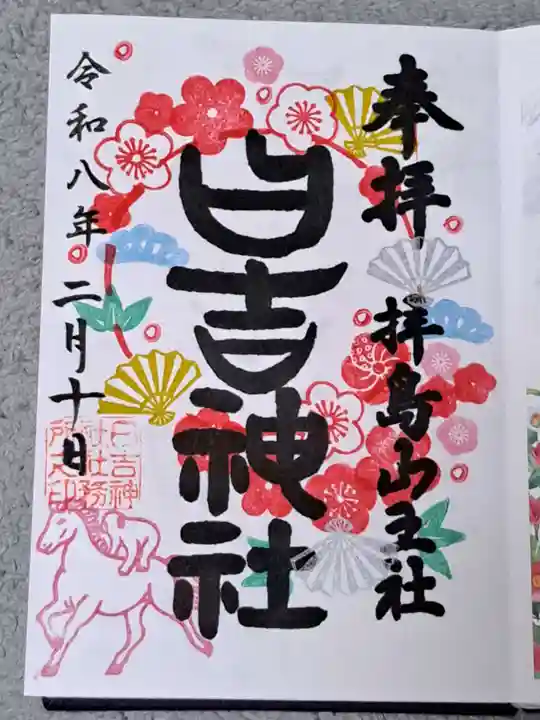 奉拝 拝島山王社
日吉神社
令和八年二月十日
日吉神
社社務
所之印